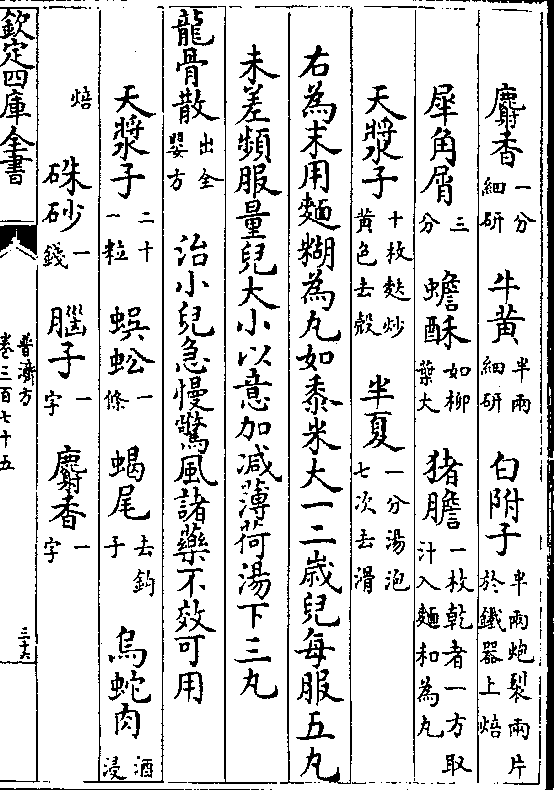 麝香一分細研　牛黄半兩細研　白附子半兩炮裂兩片於鐵器上焙
犀角屑三分　蟾酥如柳葉大　猪膽一枚乾者一方取汁入麵和為丸
天漿子十枚麩炒黄色去殻　半夏一分湯泡七次去滑
右為末用麵糊為丸如黍米大一二歲兒每服五丸
未差頻服量兒大小以意加减薄荷湯下三丸
龍骨散出全嬰方　治小兒急慢驚風諸藥不效可用
天漿子二十一粒　蜈蚣一條　蝎尾去鈎子　烏蛇肉酒浸
焙　硃砂一錢　腦子一字　麝香一字
欽定四庫全書
普濟方
卷三百七十五
三十六